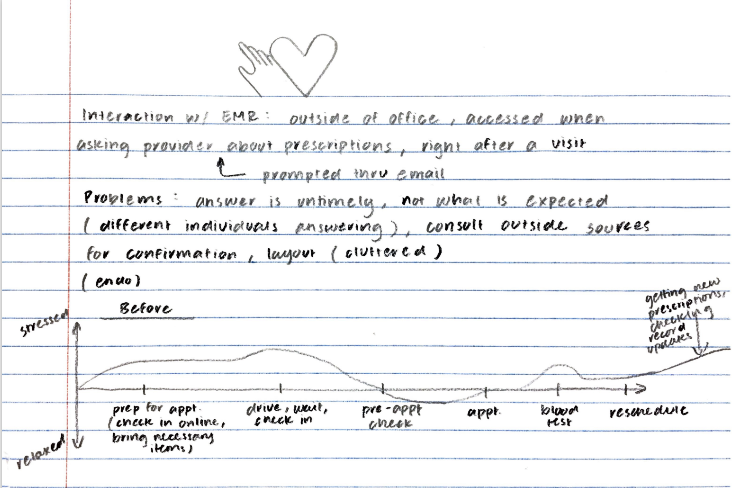 Interaction w/ EMR: outside of office, accessed when
asking provider about prescriptions, right after a visit
prompted thru email
Problems: answer is untimely, not what is expected
(different individuals answering), consult outside sources
for confirmation, layout (cluttered)
(endo)
Before
stressed
relaxed
prep for appt.
(check in online,
bring necessary
items)
drive, wait,
check in
pre-appt
check
appt.
blood
test
reschedule
getting new
prescriptions,
checking
record
updates